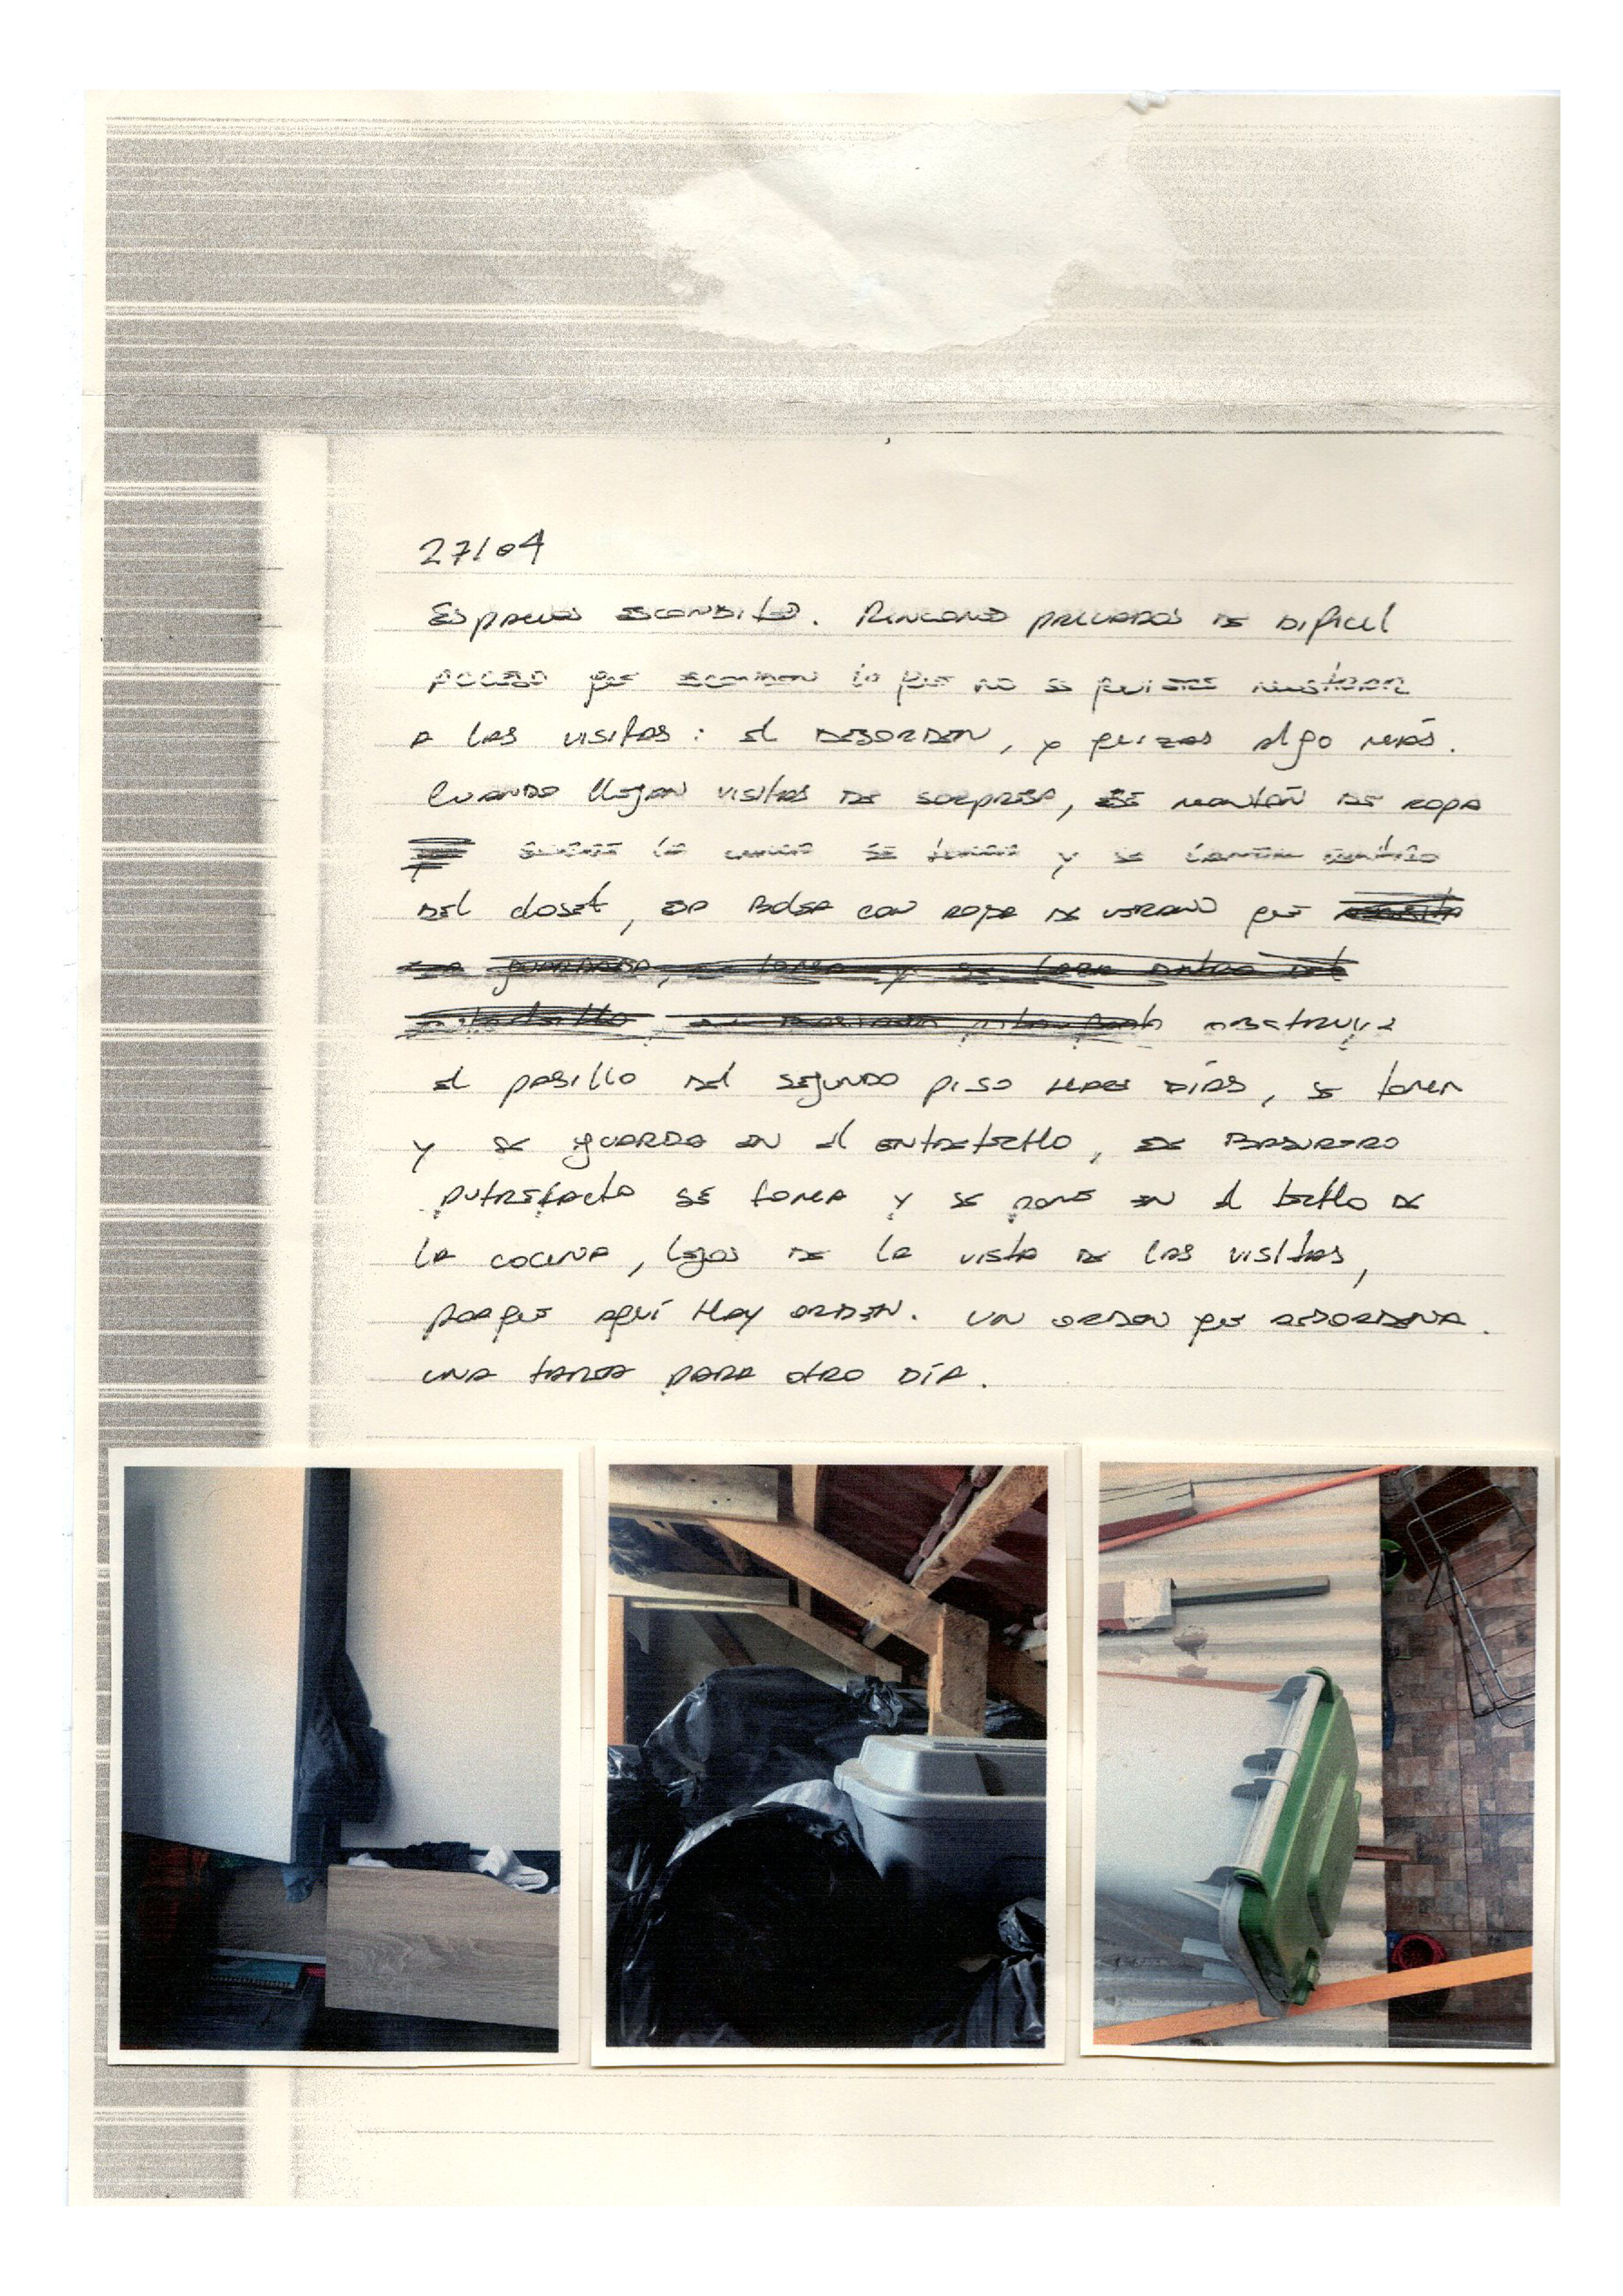 27/04
Espacios escondidos. Rincones preciados de dificil
acceso que esconden lo que no se quisiere mostrar
a las visitas: el desorden, y quizas algo más.
Cuando llegan visitas de sorpresa, ese montón de ropa
sobre la cama se toma y se lanza dentro
del closet, esa bolsa con ropa de verano que
obstruye
el pasillo del segundo piso hace días, se toma
y se guarda en el entretecho, ese basurero
putrefacto se toma y se pone en el techo de
la cocina, lejos de la vista de las visitas,
porque aquí hay orden. Un orden que desordena.
una tarea para otro día.